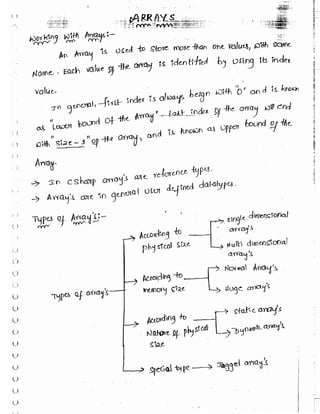 ARRAYS
Working with Arrays:-
An Array is used to store more than one values, with same
Name. Each value of the array is identified by using its index
value.
In general, first index is always begin with "0" and is known
as "Lower bound of the Array". Last index of the array will end
with "size-1" of the array, and is known as Upper bound of the
Array.
-> In csharp array's are reference types.
-> Array's are in general user defined datatypes.
Types of Array's:-
Types of array's
According to
physical size
single dimensional
array's
Multi dimensional
array's
According to
memory size
Normal Array's
Huge array's
According to
Nature of physical
size
static array's
Dynamic array's
special type -> Jagged array's